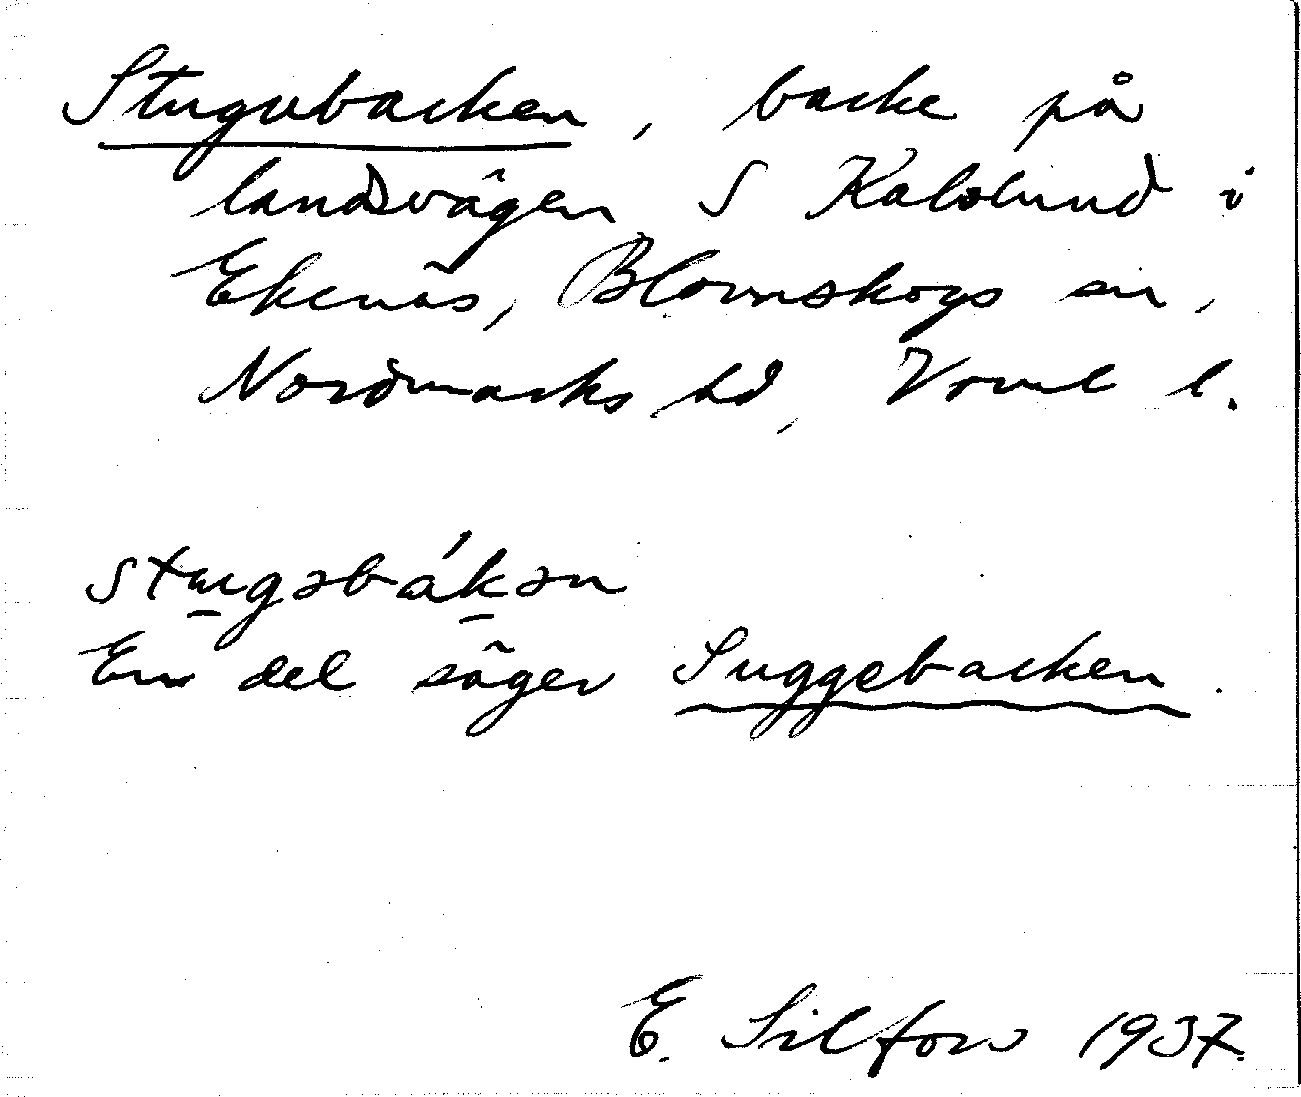 Stugubacken, backe på
landsvägen S Kalslund i
Ekenäs, Blomskogs sn,
Nordmarks hd, Vrml l.
stugəbákən
En del säger Suggebacken.
E. Silfors 1937.